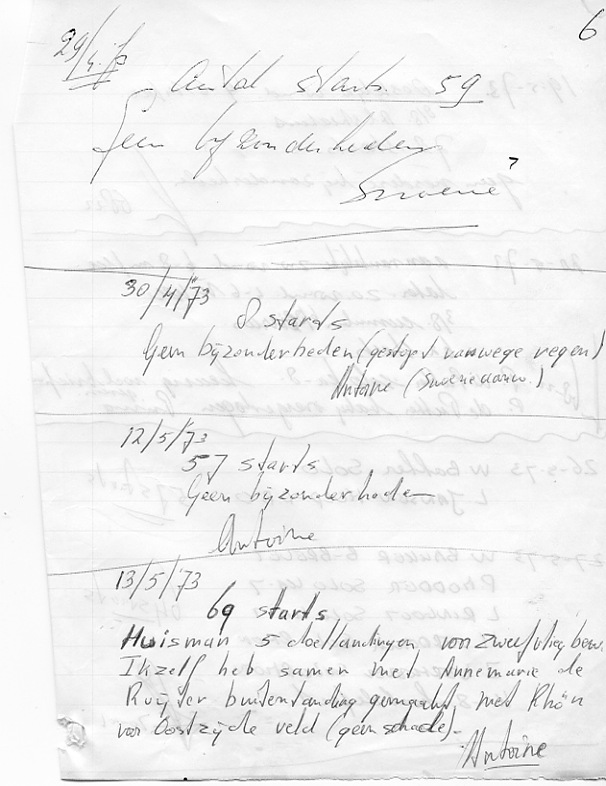 6
29/4/73
Aantal starts. 59
Geen byzonderheden
30/4/73
8 starts
Geen bijzonderheden (gestopt vanwege regen)
Antoine
12/5/73
57 starts
Geen bijzonderheden
Antoine
13/5/73
69 starts
Huisman 5 doellandingen voor zweefvliegbew.
Ikzelf heb samen met Annemarie de
Ruijter buitenlanding gemaakt met Rhön
van Oostzijde veld (geen schade).
Antoine